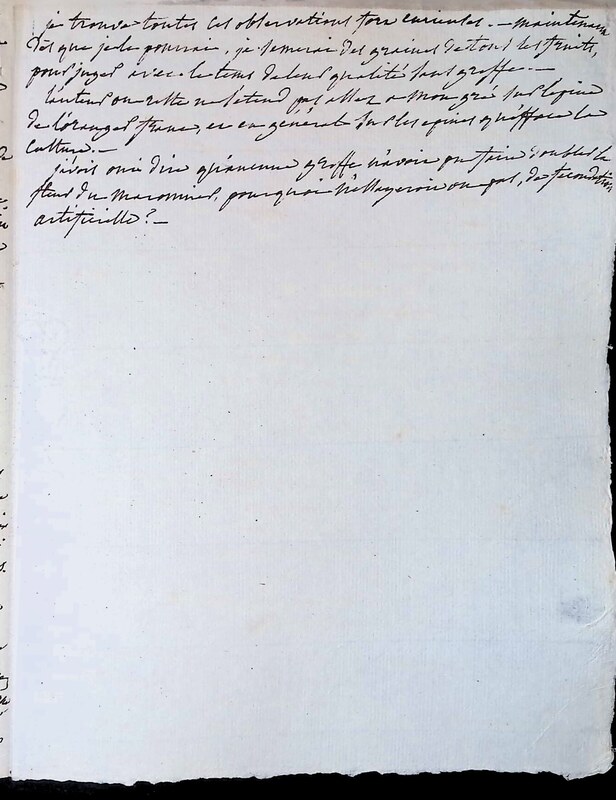 je trouve toutes ces observations fort curieuses. — maintenant
dès que je le pourrai, je semerai des graines de tous les fruits,
pour juger avec le tems de leur qualité sans greffe. —
l'auteur au reste ne s'étend pas assez a mon gré sur l'epine
de l'oranger franc, et en général sur les epines qu'efface la
culture. —
j'avois oui dire qu'aucune greffe n'avoit pu faire doubler la
fleur du maronnier, pourquoi n'essayeroit on pas, de fécondation
artificielle ? —